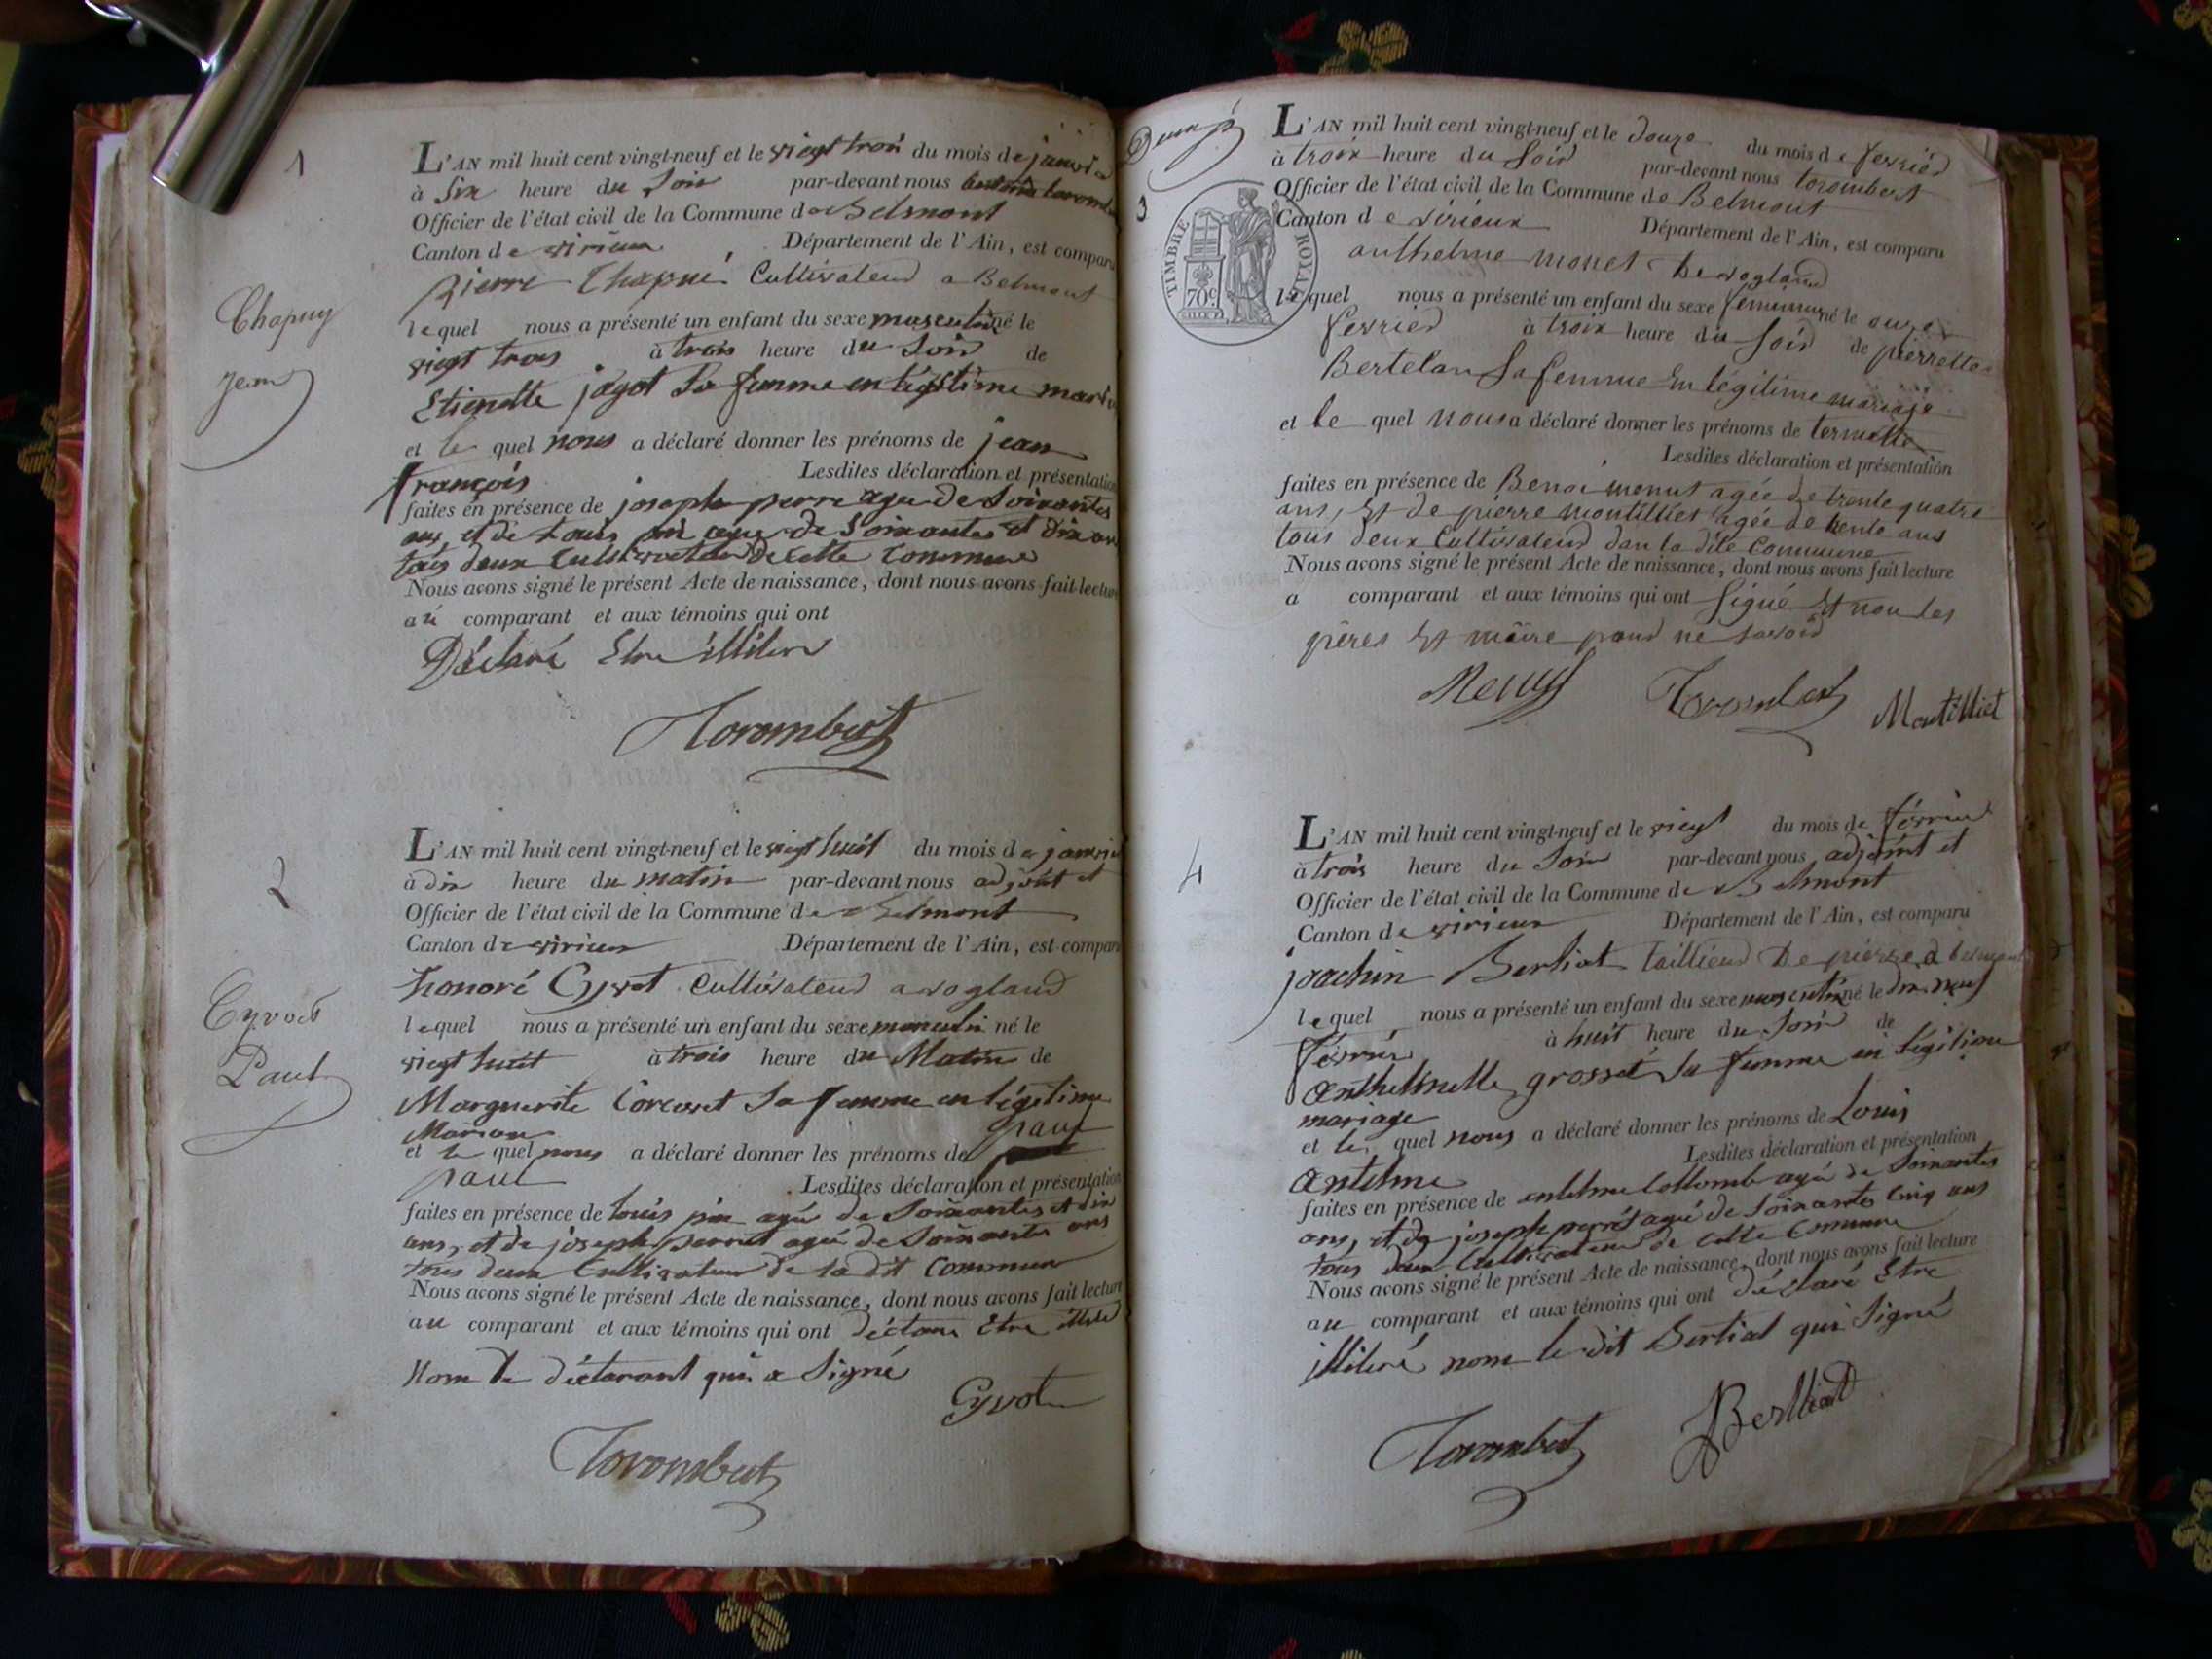 1
L'AN mil huit cent vingt-neuf et le vingt trois du mois de janvier
à Six heure du Soir par-devant nous
Officier de l'état civil de la Commune de Belmont
Canton de virieux Département de l'Ain, est comparu
pierre Chapué Cultivateur a Belmont
Chapuy
Jean
lequel nous a présenté un enfant du sexe masculin né le
vingt trois à trois heure du Soir de
Etienette jagot Sa femme en légitime
et le quel nous a déclaré donner les prénoms de jean
françois Lesdites déclaration et présentation
faites en présence de joseph perre agée de Soixantes
ans et de Louis pin agée de Soixantes et dix ans
tous deux Cultivateur de Cette Commune
Nous avons signé le présent Acte de naissance, dont nous avons fait lecture
au comparant et aux témoins qui ont
Déclaré Etre illiteré
Torombert
2
L'AN mil huit cent vingt-neuf et le vingt huit du mois de janvier
à dix heure du matin par-devant nous adjoint et
Officier de l'état civil de la Commune de Belmont
Canton de virieux Département de l'Ain, est comparu
honoré Cyvot Cultivateur a vogland
Cyvot
Paul
lequel nous a présenté un enfant du sexe masculin né le
vingt huit à trois heure du Matin de
Marguerite Sa femme en légitime
et le quel nous a déclaré donner les prénoms de paul
paul Lesdites déclaration et présentation
faites en présence de Louis pin agée de Soixantes et dix
ans, et de joseph perret agée de Soixantes ans
tous deux Cultivateur de la dit Commune
Nous avons signé le présent Acte de naissance, dont nous avons fait lecture
au comparant et aux témoins qui ont déclaré Etre
nom le déclarant qui a Signé
Cyvot
Torombert
3
L'AN mil huit cent vingt-neuf et le douze du mois de fevrier
à trois heure du Soir par-devant nous torombert
Officier de l'état civil de la Commune de Belmont
Canton de virieux Département de l'Ain, est comparu
TIMBRE ROYAL
70c.
anthelme monet De vogland
lequel nous a présenté un enfant du sexe feminin né le onze
fevrier à trois heure du Soir de pierrette
Bertelan Sa femme En légitime mariage
et le quel nous a déclaré donner les prénoms de
Lesdites déclaration et présentation
faites en présence de Benoi monut agée de trente quatre
ans, Et de pierre montilliet agée de trente ans
tous deux Cultivateur dan la dite Commune
Nous avons signé le présent Acte de naissance, dont nous avons fait lecture
a comparant et aux témoins qui ont Signé Et non les
pères Et mère pour ne Savoir
Torombert
Montilliet
4
L'AN mil huit cent vingt-neuf et le vingt du mois de février
à trois heure du Soir par-devant nous adjoint et
Officier de l'état civil de la Commune de Belmont
Canton de virieux Département de l'Ain, est comparu
joachin Berliat taillieur De pierre a belmont
lequel nous a présenté un enfant du sexe masculin né le dix neuf
février à huit heure du Soir de
Anthelmette grosset Sa femme en légitime
mariage
et le quel nous a déclaré donner les prénoms de Louis
Antelme Lesdites déclaration et présentation
faites en présence de antelme Collomb agée de Soixantes
ans, et de joseph perret agée de Soixante Cinq ans
tous deux Cultivateur de Cette Commune
Nous avons signé le présent Acte de naissance, dont nous avons fait lecture
au comparant et aux témoins qui ont déclaré Etre
illiteré nom le dit Berliat qui Signé
Torombert
Berlliat